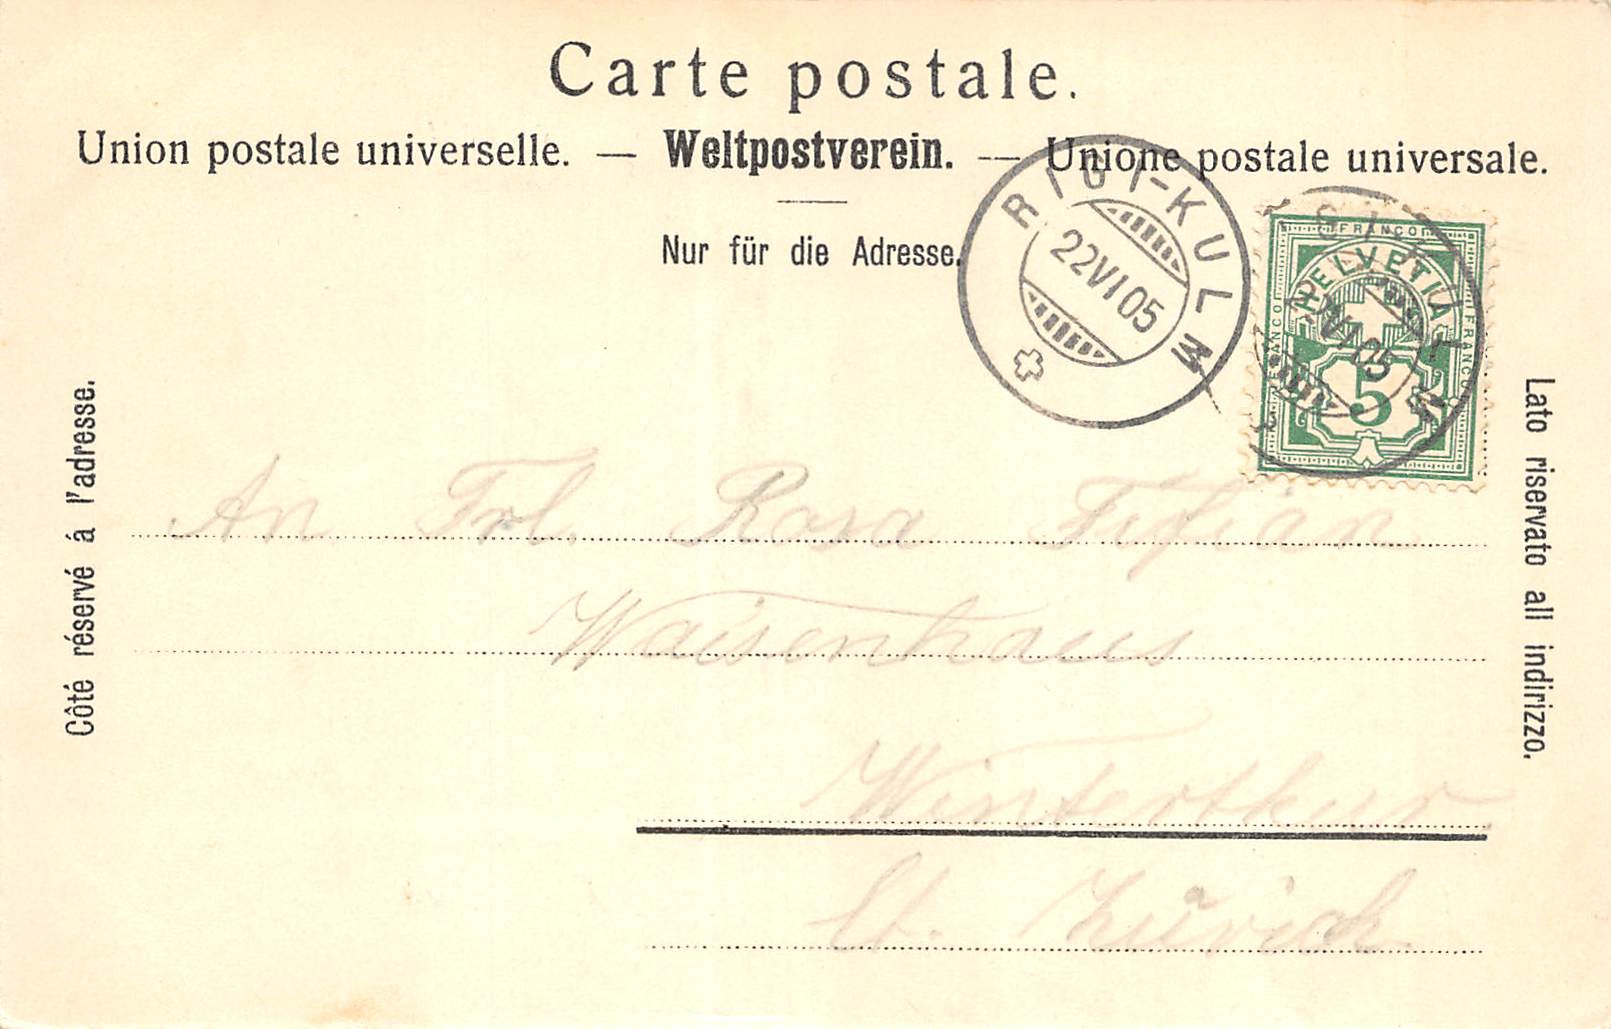 Carte postale.
Union postale universelle. — Weltpostverein. — Unione postale universale.
Nur für die Adresse.
RIGI-KULM
22 VI 05
FRANCO
HELVETIA
FRANCO
FRANCO
VI 05
5
Côté réservé á l'adresse.
Lato riservato all indirizzo.
An Frl. Rosa
Waisenhaus
Winterthur
Ct. Zürich